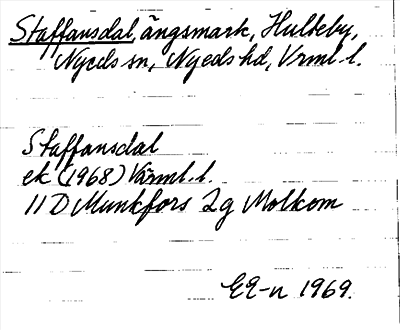 Staffansdal, ängsmark, Hulteby,
Nyeds sn, Nyeds hd, Vrml. l.
Staffansdal
ek (1968) Värml. l.
11 D Munkfors 2g Molkom
EE-n 1969.